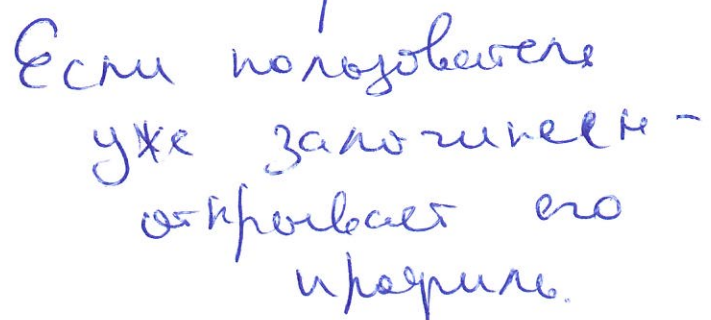 Если пользователь
уже залогинен -
открывает его
профиль.